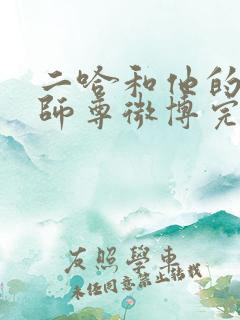 二哈和他的
師尊微博完
友照學車
未经同意禁止转载